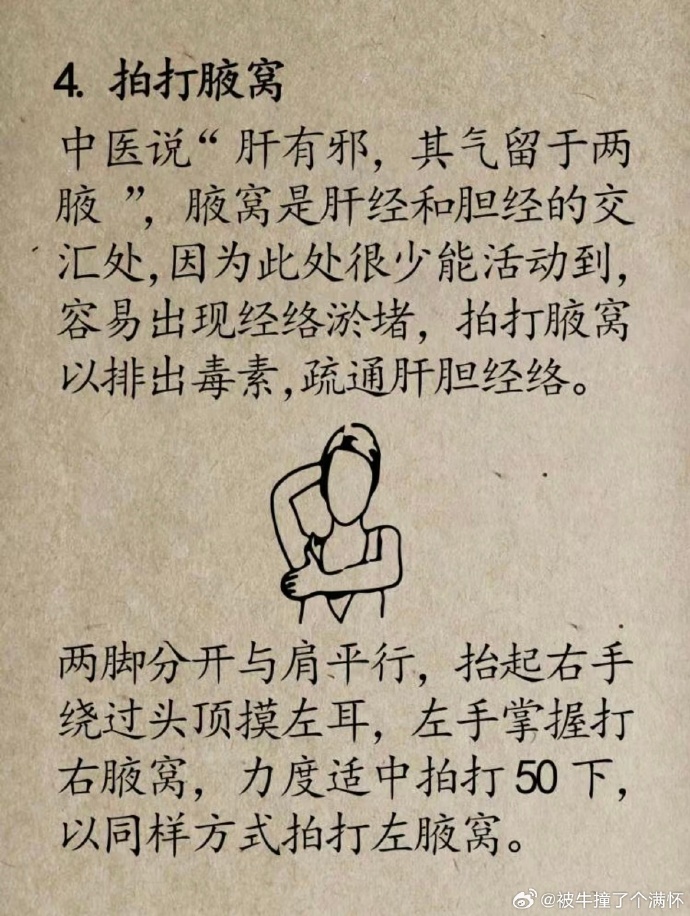 4. 拍打腋窝
中医说“肝有邪，其气留于两
腋 ”，腋窝是肝经和胆经的交
汇处,因为此处很少能活动到，
容易出现经络淤堵，拍打腋窝
以排出毒素,疏通肝胆经络。
两脚分开与肩平行，抬起右手
绕过头顶摸左耳，左手掌握打
右腋窝，力度适中拍打 50 下，
以同样方式拍打左腋窝。
@被牛撞了个满怀